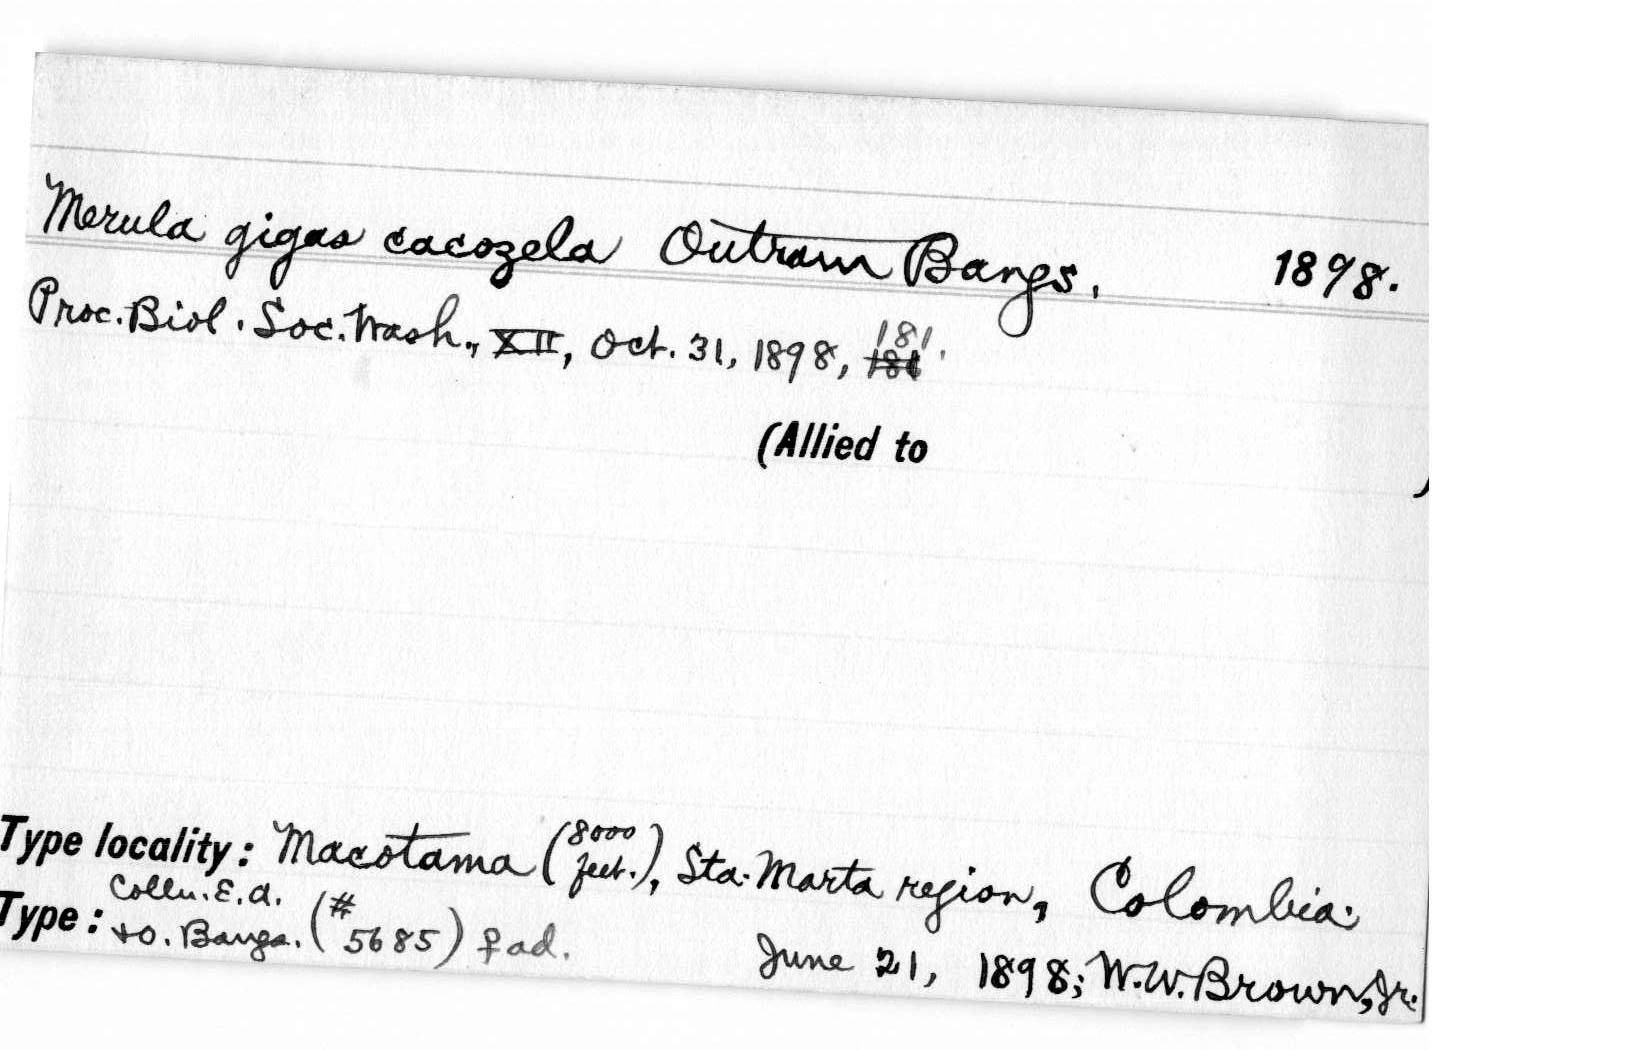 Merula gigas cacozela Outram Bangs. 1898.
Proc. Biol. Soc. Wash., XII, Oct. 31, 1898, 181.
(Allied to )
Type locality: Macotama (8000 feet.), Sta. Marta region, Colombia.
Type: Colln. E.A. & O. Bangs. (# 5685) ♀ ad. June 21, 1898; W.W. Brown, Jr.